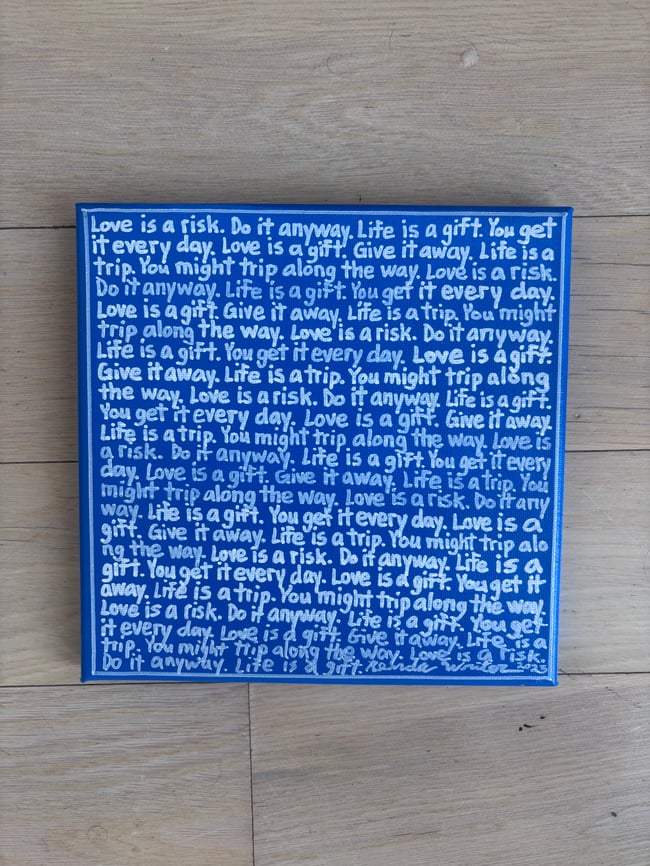 Love is a risk. Do it anyway. Life is a gift. You get
it every day. Love is a gift. Give it away. Life is a
trip. You might trip along the way. Love is a risk.
Do it anyway. Life is a gift. You get it every day.
Love is a gift. Give it away. Life is a trip. You might
trip along the way. Love is a risk. Do it anyway.
Life is a gift. You get it every day. Love is a gift.
Give it away. Life is a trip. You might trip along
the way. Love is a risk. Do it anyway. Life is a gift.
You get it every day. Love is a gift. Give it away.
Life is a trip. You might trip along the way. Love is
a risk. Do it anyway. Life is a gift. You get it every
day. Love is a gift. Give it away. Life is a trip. You
might trip along the way. Love is a risk. Do it any
way. Life is a gift. You get it every day. Love is a
gift. Give it away. Life is a trip. You might trip alo
ng the way. Love is a risk. Do it anyway. Life is a
gift. You get it every day. Love is a gift. You get it
away. Life is a trip. You might trip along the way.
Love is a risk. Do it anyway. Life is a gift. You get
it every day. Love is a gift. Give it away. Life is a
trip. You might trip along the way. Love is a risk.
Do it anyway. Life is a gift. 2023